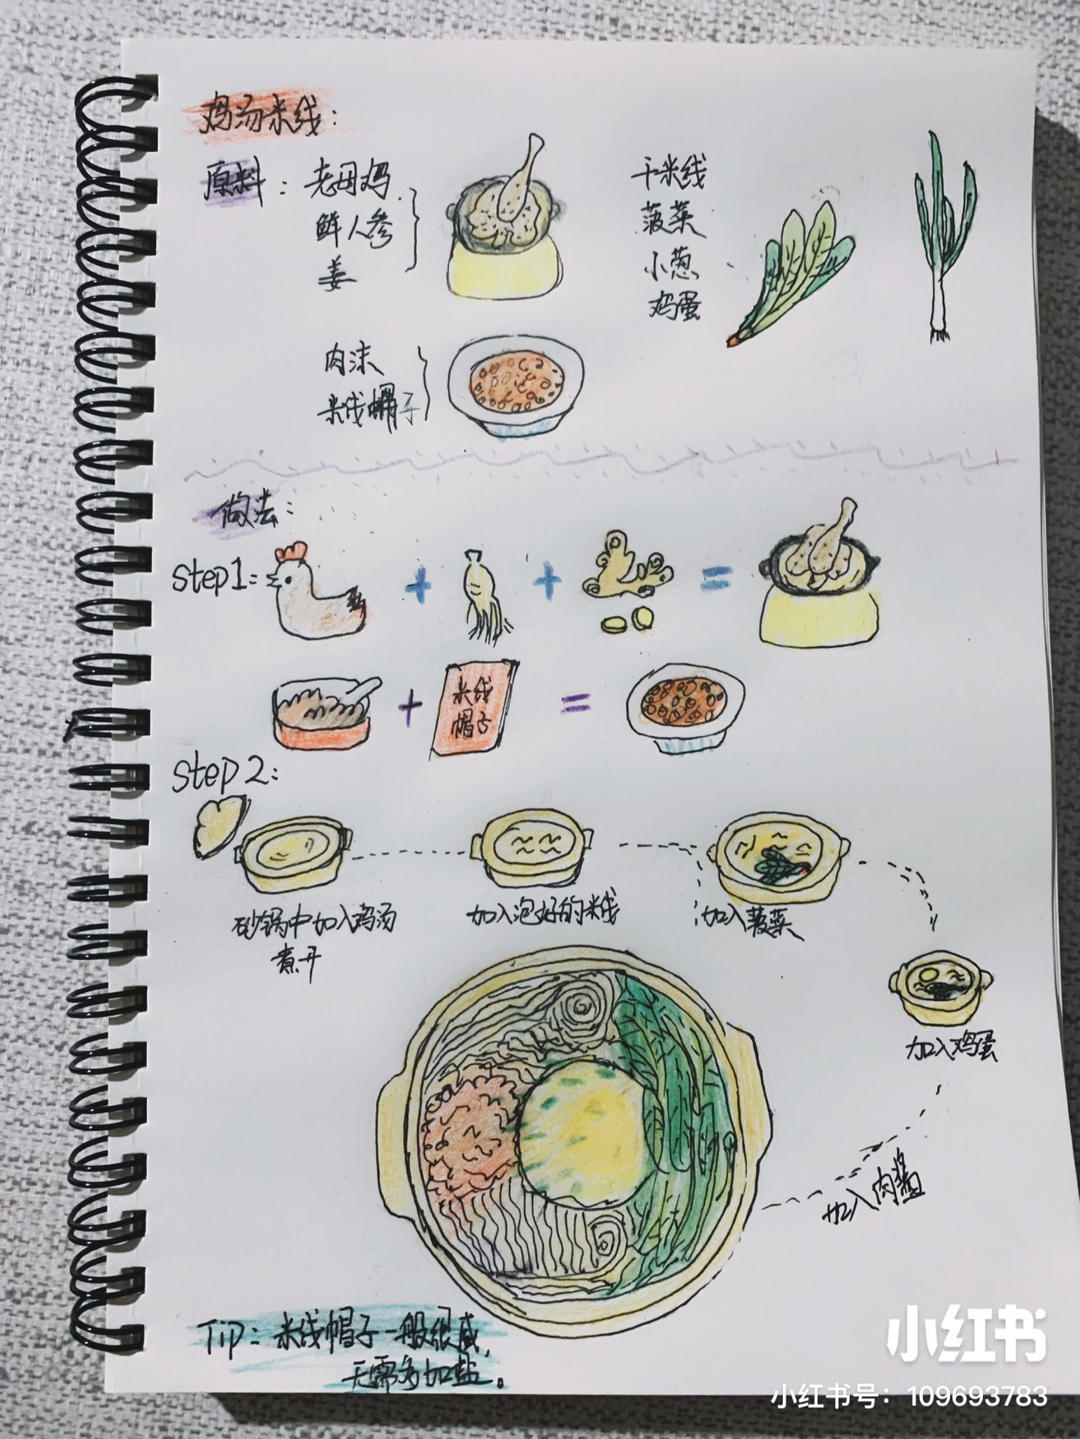 鸡汤米线:
原料: 老母鸡
鲜人参
姜
干米线
菠菜
小葱
鸡蛋
肉沫
米线帽子
做法:
Step1:
米线
帽子
Step 2:
砂锅中加入鸡汤
煮开
加入泡好的米线
加入菠菜
加入鸡蛋
加入肉酱
TIP: 米线帽子一般很咸,
无需多加盐。
小红书
小红书号: 109693783